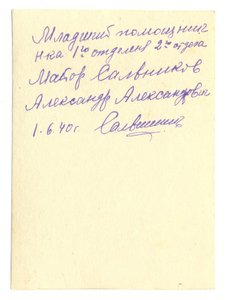 Младший помощник
ника 1го отделения 2го отдела
Майор Сальников
Александр Александрович
1.6.40г.